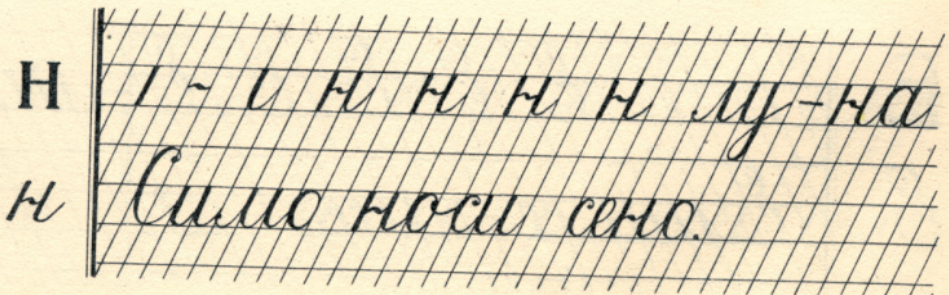 Н ı - ɩ н н н н лу-на
н Симо носи сено.